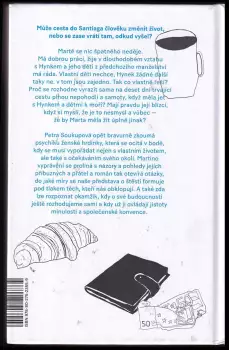 Může cesta do Santiaga člověku změnit život,
nebo se zase vrátí tam, odkud vyšel?
Martě se nic špatného neděje.
Má dobrou práci, žije v dlouhodobém vztahu
s Hynkem a jeho děti z předchozího manželství
má ráda. Vlastní děti nechce, Hynek žádné další
taky ne, v tom jsou zajedno. Tak co vlastně řeší?
Proč se rozhodne vyrazit sama na deset dní trvající
cestu plnou nepohodlí a samoty, když měla jet
s Hynkem a dětmi k moři? Mají pravdu její blízcí,
když si myslí, že je to nesmysl a vůbec –
že by Marta měla žít úplně jinak?
Petra Soukupová opět bravurně zkoumá
psychiku ženské hrdinky, která se ocitá v bodě,
kdy se musí vypořádat nejen s vlastním životem,
ale také s očekáváním svého okolí. Martino
vyprávění se prolíná s názory a pohledy jejích
příbuzných a přátel a román tak otevírá otázky,
do jaké míry se naše představa o štěstí formuje
pod tlakem těch, kteří nás obklopují. A také zda
lze rozpoznat okamžik, kdy o své budoucnosti
ještě rozhodujeme sami a kdy už ji ovládají jistoty
minulosti a společenské konvence.
50